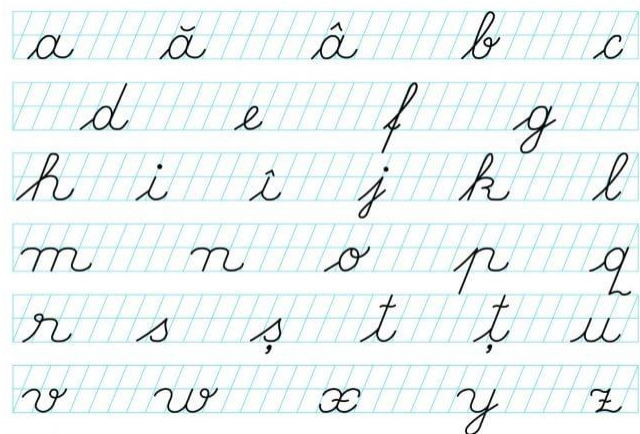 a ă â b c
d e f g
h i î j k l
m n o p q
r s ș t ț u
v w x y z